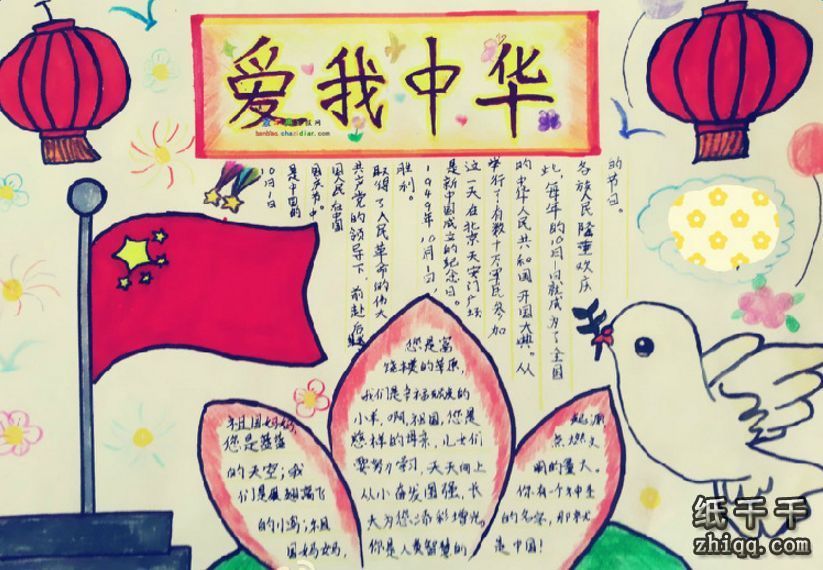 爱我中华
banbao.chazidian.com
10月1日
是中国的
国庆节。中
国人民在中国
共产党的领导下,前赴后继
取得了人民革命的伟大
胜利。
1949年10月1日,
是新中国成立的纪念日。
这一天在北京天安门广场
举行了有数十万军民参加
的中华人民共和国开国大典。从
此,每年的10月一日就成为了全国
各族人民隆重欢庆
的节日。
祖国妈妈,
您是蓝蓝
的天空;我
们是展翅高飞
的小鸟;祖
国妈妈,
您是富
饶美的草原,
我们是幸福的
小羊,啊,祖国,您是
慈祥的母亲,儿女们
要努力学习,天天向上
从小奋发图强,长
大为您添彩增光,
你是人类智慧的
起源
点燃文
明的星火。
你有一个神圣
的名字,那就
是中国!
纸千千
zhiqq.com